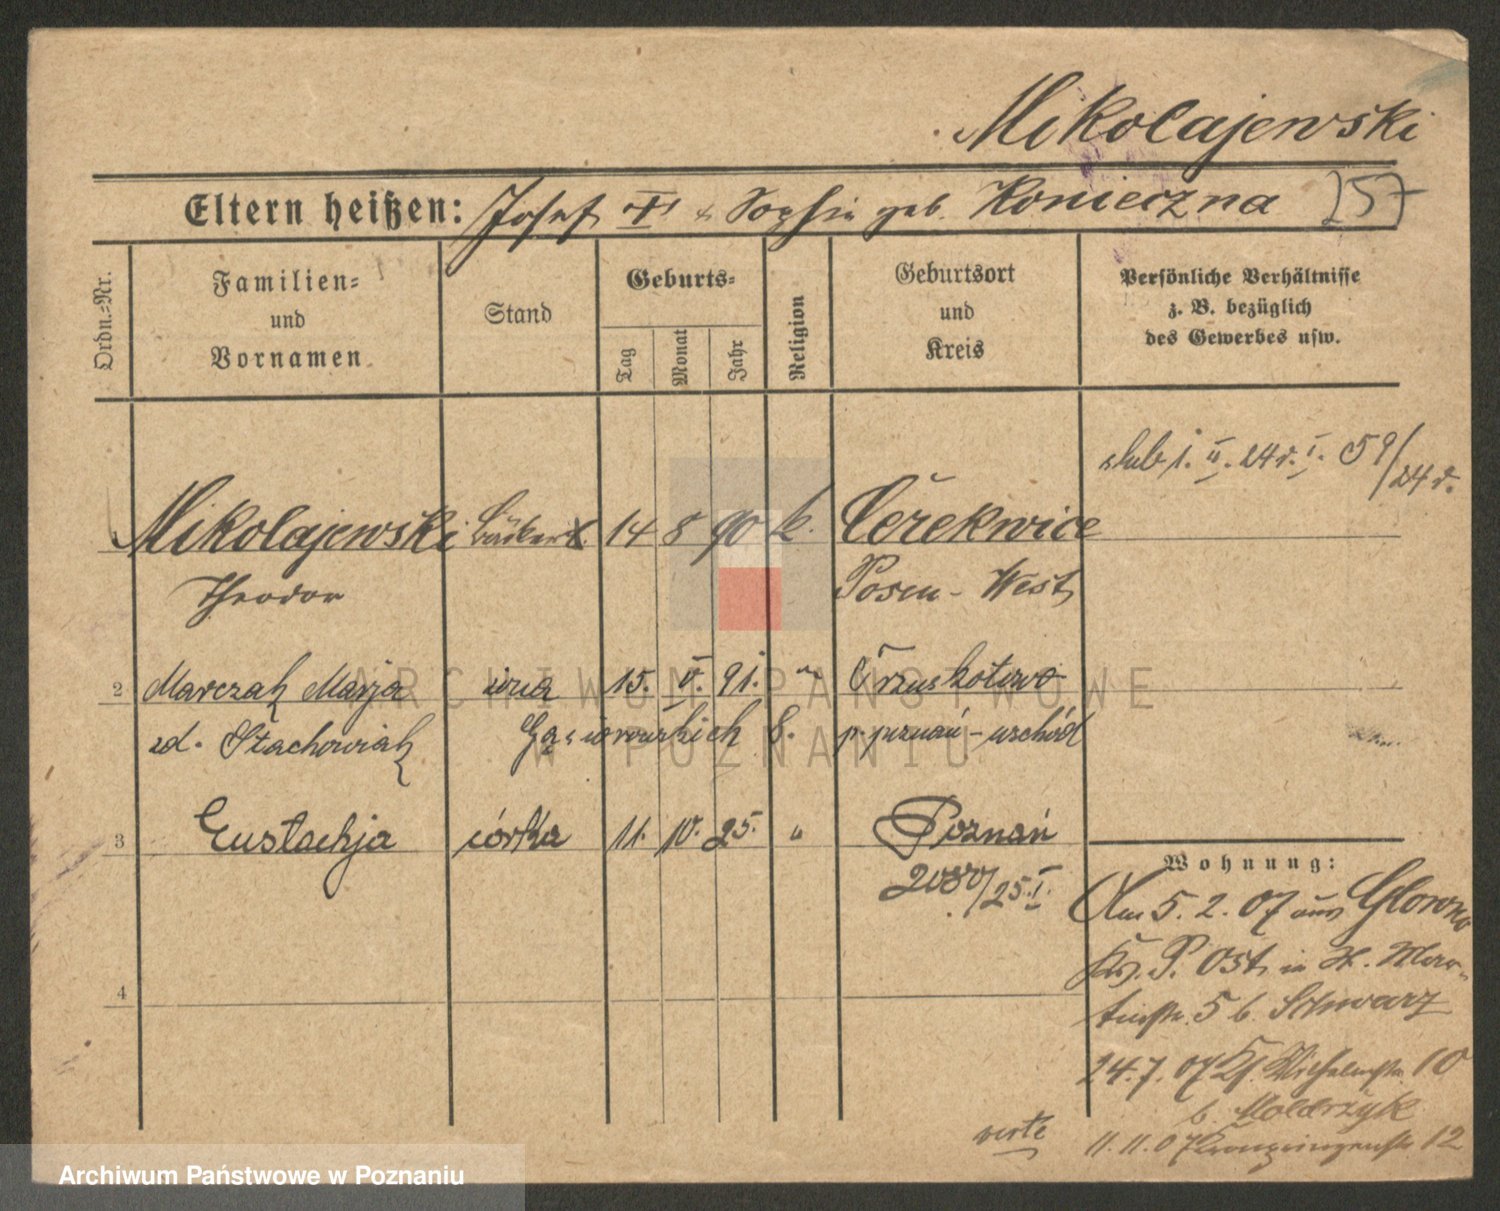 Mikolajewski
Eltern heißen: Josef † & Sophie geb. Konieczna 257
Ordn.-Nr.
Familien-
und
Vornamen
Stand
Geburts-
Tag
Monat
Jahr
Religion
Geburtsort
und
Kreis
Persönliche Verhältnisse
z. B. bezüglich
des Gewerbes usw.
slub 1. II. 24 r. I. 59/24 r.
Mikolajewski Bäckerl. 14 8 90 k. Cerekwice
Theodor Posen-West
2 Marczak Marja żona 15. V. 91. " Truskotowo
zd. Stachowiak Gąsiorowskich 8. p. poznań-wschód
3 Eustachja córka 11. 10. 25. " Poznań
2080/25. I.
4
Wohnung:
Am 5. 2. 07 aus Glowno
Krs. P. Ost, in St. Mar-
tinstr. 5 b. Schwarz
24. 7. 07 Wilhelmstr. 10
b. Molderzyk
11. 11. 07 Kronprinzenstr. 12
verte
ARCHIWUM PAŃSTWOWE
W POZNANIU
Archiwum Państwowe w Poznaniu